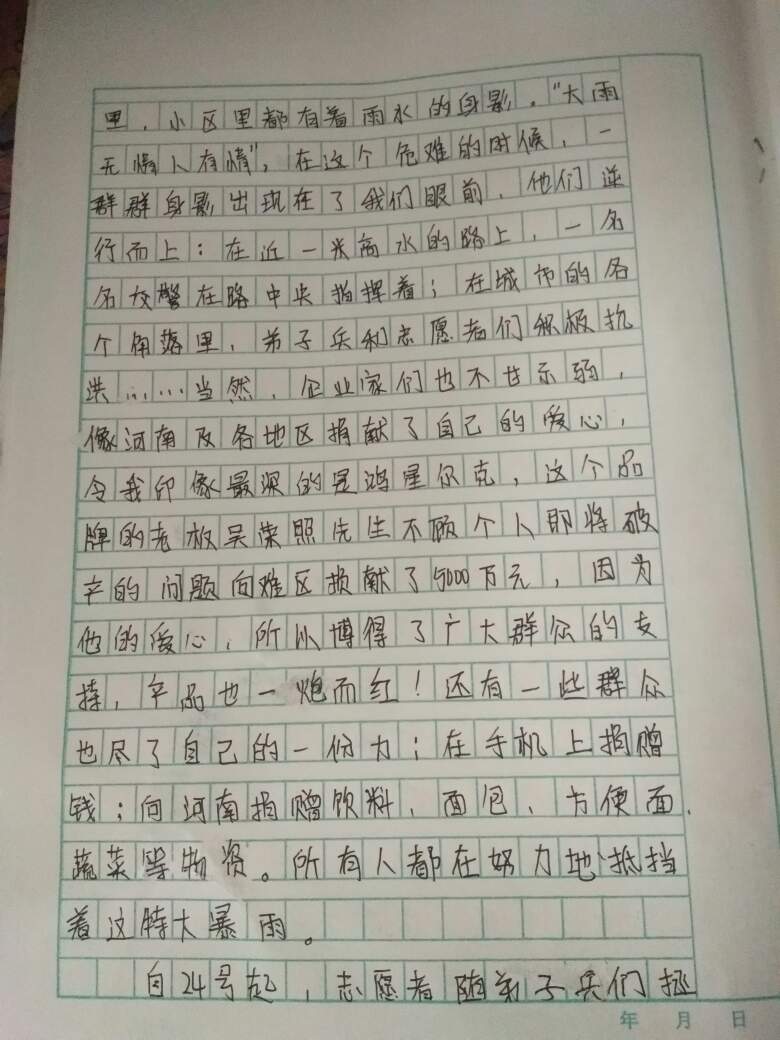 里，小区里都有着雨水的身影。“大雨
无情人有情”，在这个危难的时候，一
群群身影出现在了我们眼前，他们逆
行而上：在近一米高水的路上，一名
名交警在路中央指挥着；在城市的各
个角落里，弟子兵和志愿者们积极抗
洪……当然，企业家们也不甘示弱，
像河南及各地区捐献了自己的爱心，
令我印像最深的是鸿星尔克，这个品
牌的老板吴荣照先生不顾个人即将破
产的问题向难区损献了5000万元，因为
他的爱心，所以博得了广大群众的支
持，产品也一炮而红！还有一些群众
也尽了自己的一份力；在手机上捐赠
钱；向河南捐赠饮料、面包、方便面、
蔬菜等物资。所有人都在努力地抵挡
着这特大暴雨。
自24号起，志愿者随弟子兵们拯
年 月 日